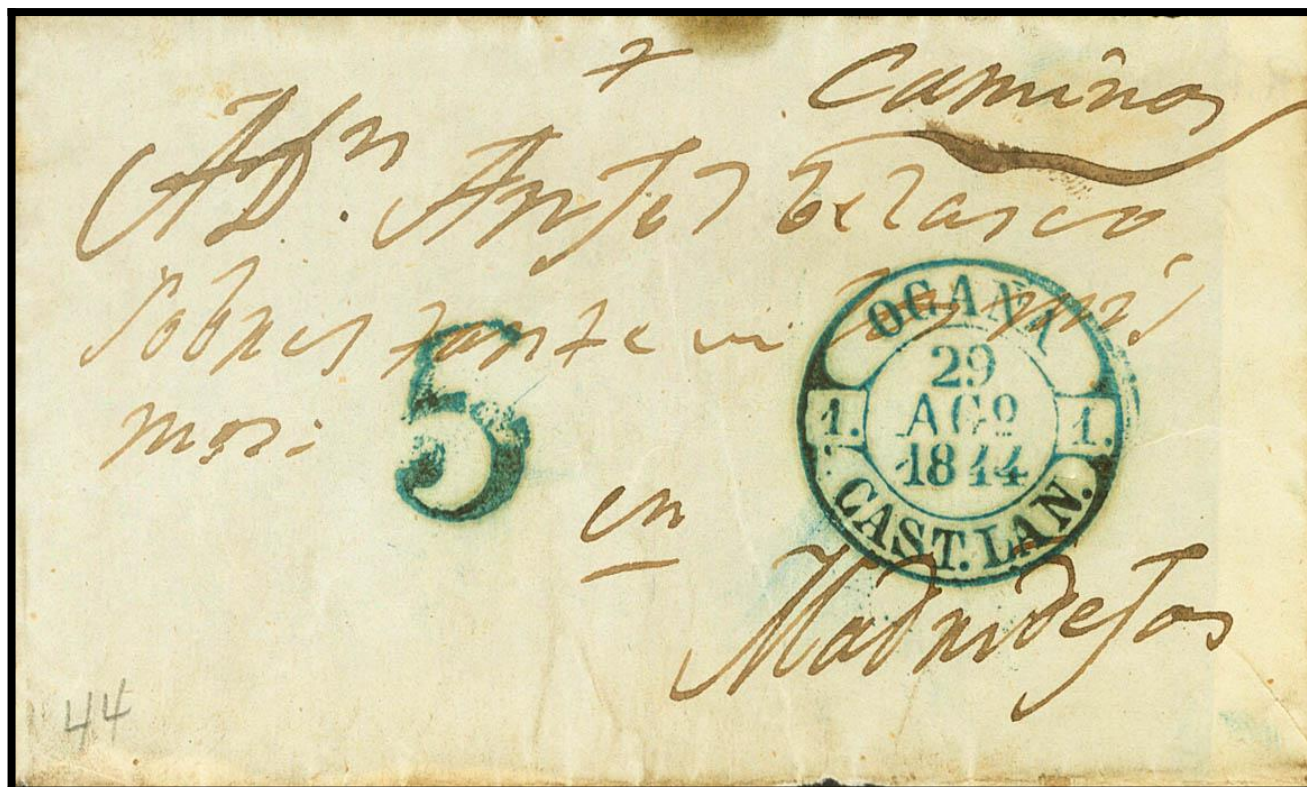 Caminos
A Dn. Anjel Belasco
Sobrestante en los mis
mos:
5
OCAÑA
1. 29 1.
AGO
1844
CAST. LAN.
en
Madridejos
44